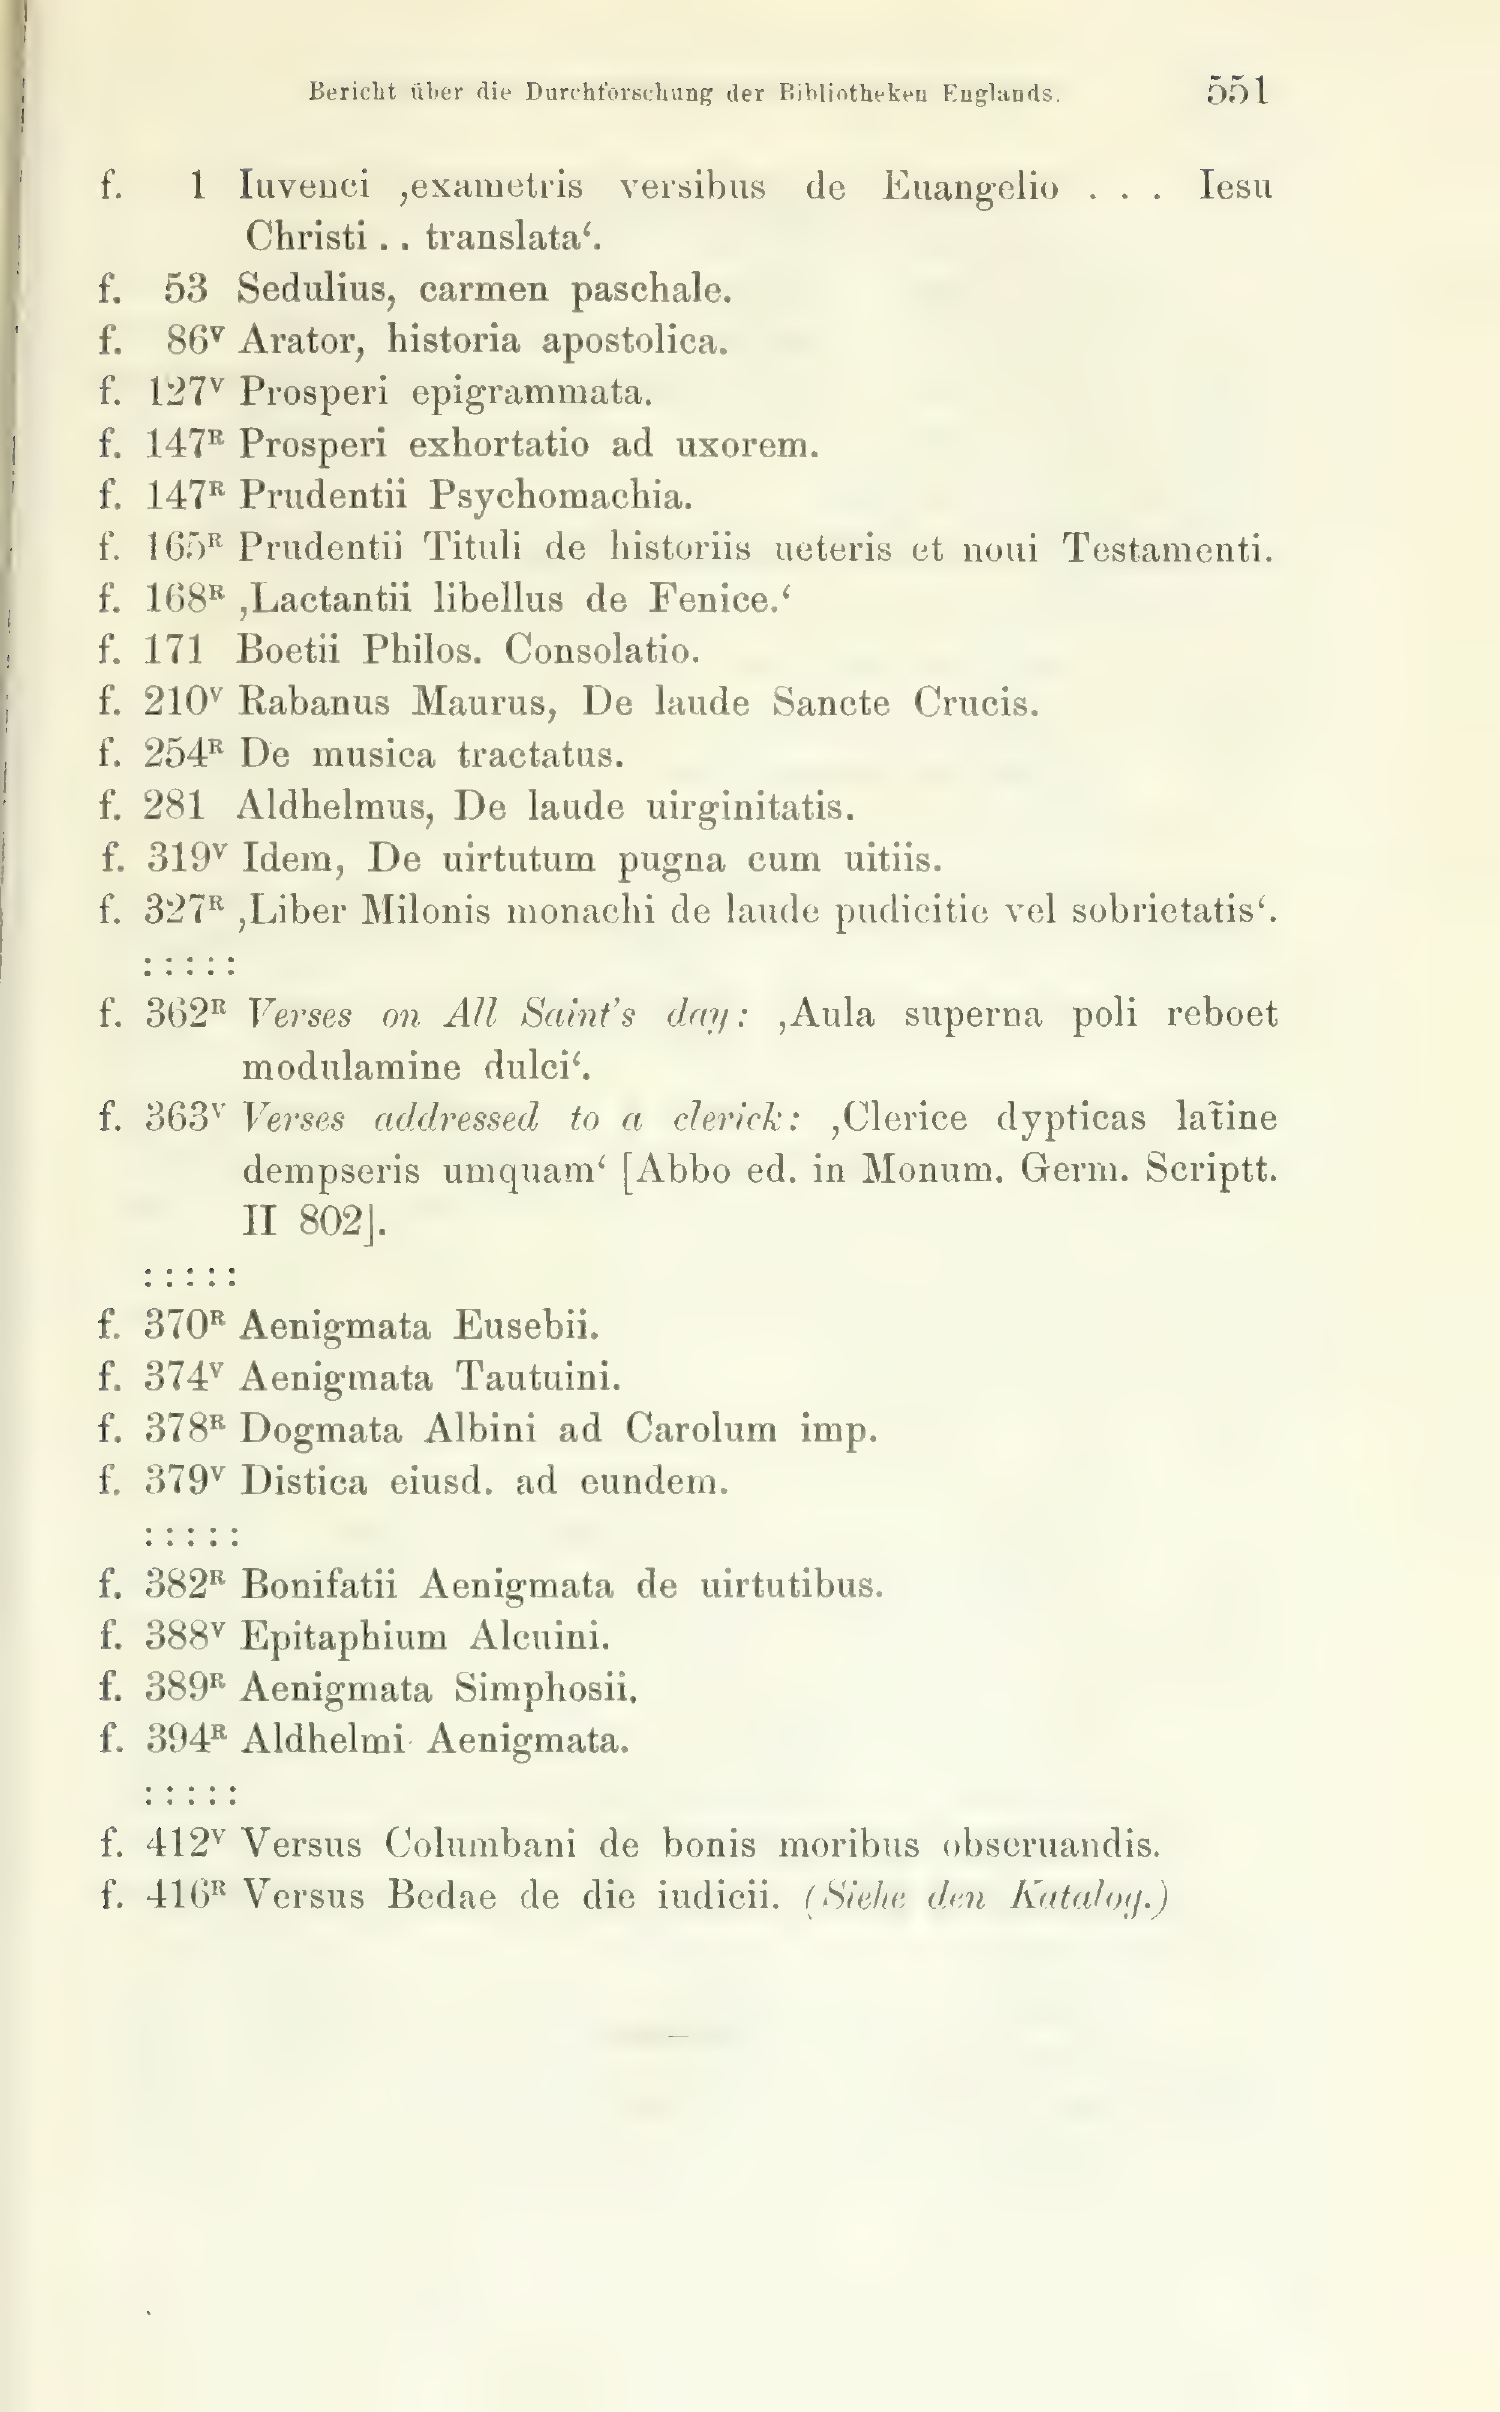 Bericht über die Durchforschung der Bibliotheken Englands. 551
f. 1 Iuvenci ‚exametris versibus de Euangelio . . . Iesu
Christi . . translata‘.
f. 53 Sedulius, carmen paschale.
f. 86ᵛ Arator, historia apostolica.
f. 127ᵛ Prosperi epigrammata.
f. 147ᴿ Prosperi exhortatio ad uxorem.
f. 147ᴿ Prudentii Psychomachia.
f. 165ᴿ Prudentii Tituli de historiis ueteris et noui Testamenti.
f. 168ᴿ ‚Lactantii libellus de Fenice.‘
f. 171 Boetii Philos. Consolatio.
f. 210ᵛ Rabanus Maurus, De laude Sancte Crucis.
f. 254ᴿ De musica tractatus.
f. 281 Aldhelmus, De laude uirginitatis.
f. 319ᵛ Idem, De uirtutum pugna cum uitiis.
f. 327ᴿ ‚Liber Milonis monachi de laude pudicitie vel sobrietatis‘.
: : : : :
f. 362ᴿ Verses on All Saint's day: ‚Aula superna poli reboet
modulamine dulci‘.
f. 363ᵛ Verses addressed to a clerick: ‚Clerice dypticas lat̃ine
dempseris umquam‘ [Abbo ed. in Monum. Germ. Scriptt.
II 802].
: : : : :
f. 370ᴿ Aenigmata Eusebii.
f. 374ᵛ Aenigmata Tautuini.
f. 378ᴿ Dogmata Albini ad Carolum imp.
f. 379ᵛ Distica eiusd. ad eundem.
: : : : :
f. 382ᴿ Bonifatii Aenigmata de uirtutibus.
f. 388ᵛ Epitaphium Alcuini.
f. 389ᴿ Aenigmata Simphosii.
f. 394ᴿ Aldhelmi Aenigmata.
: : : : :
f. 412ᵛ Versus Columbani de bonis moribus obseruandis.
f. 416ᴿ Versus Bedae de die iudicii. (Siehe den Katalog.)